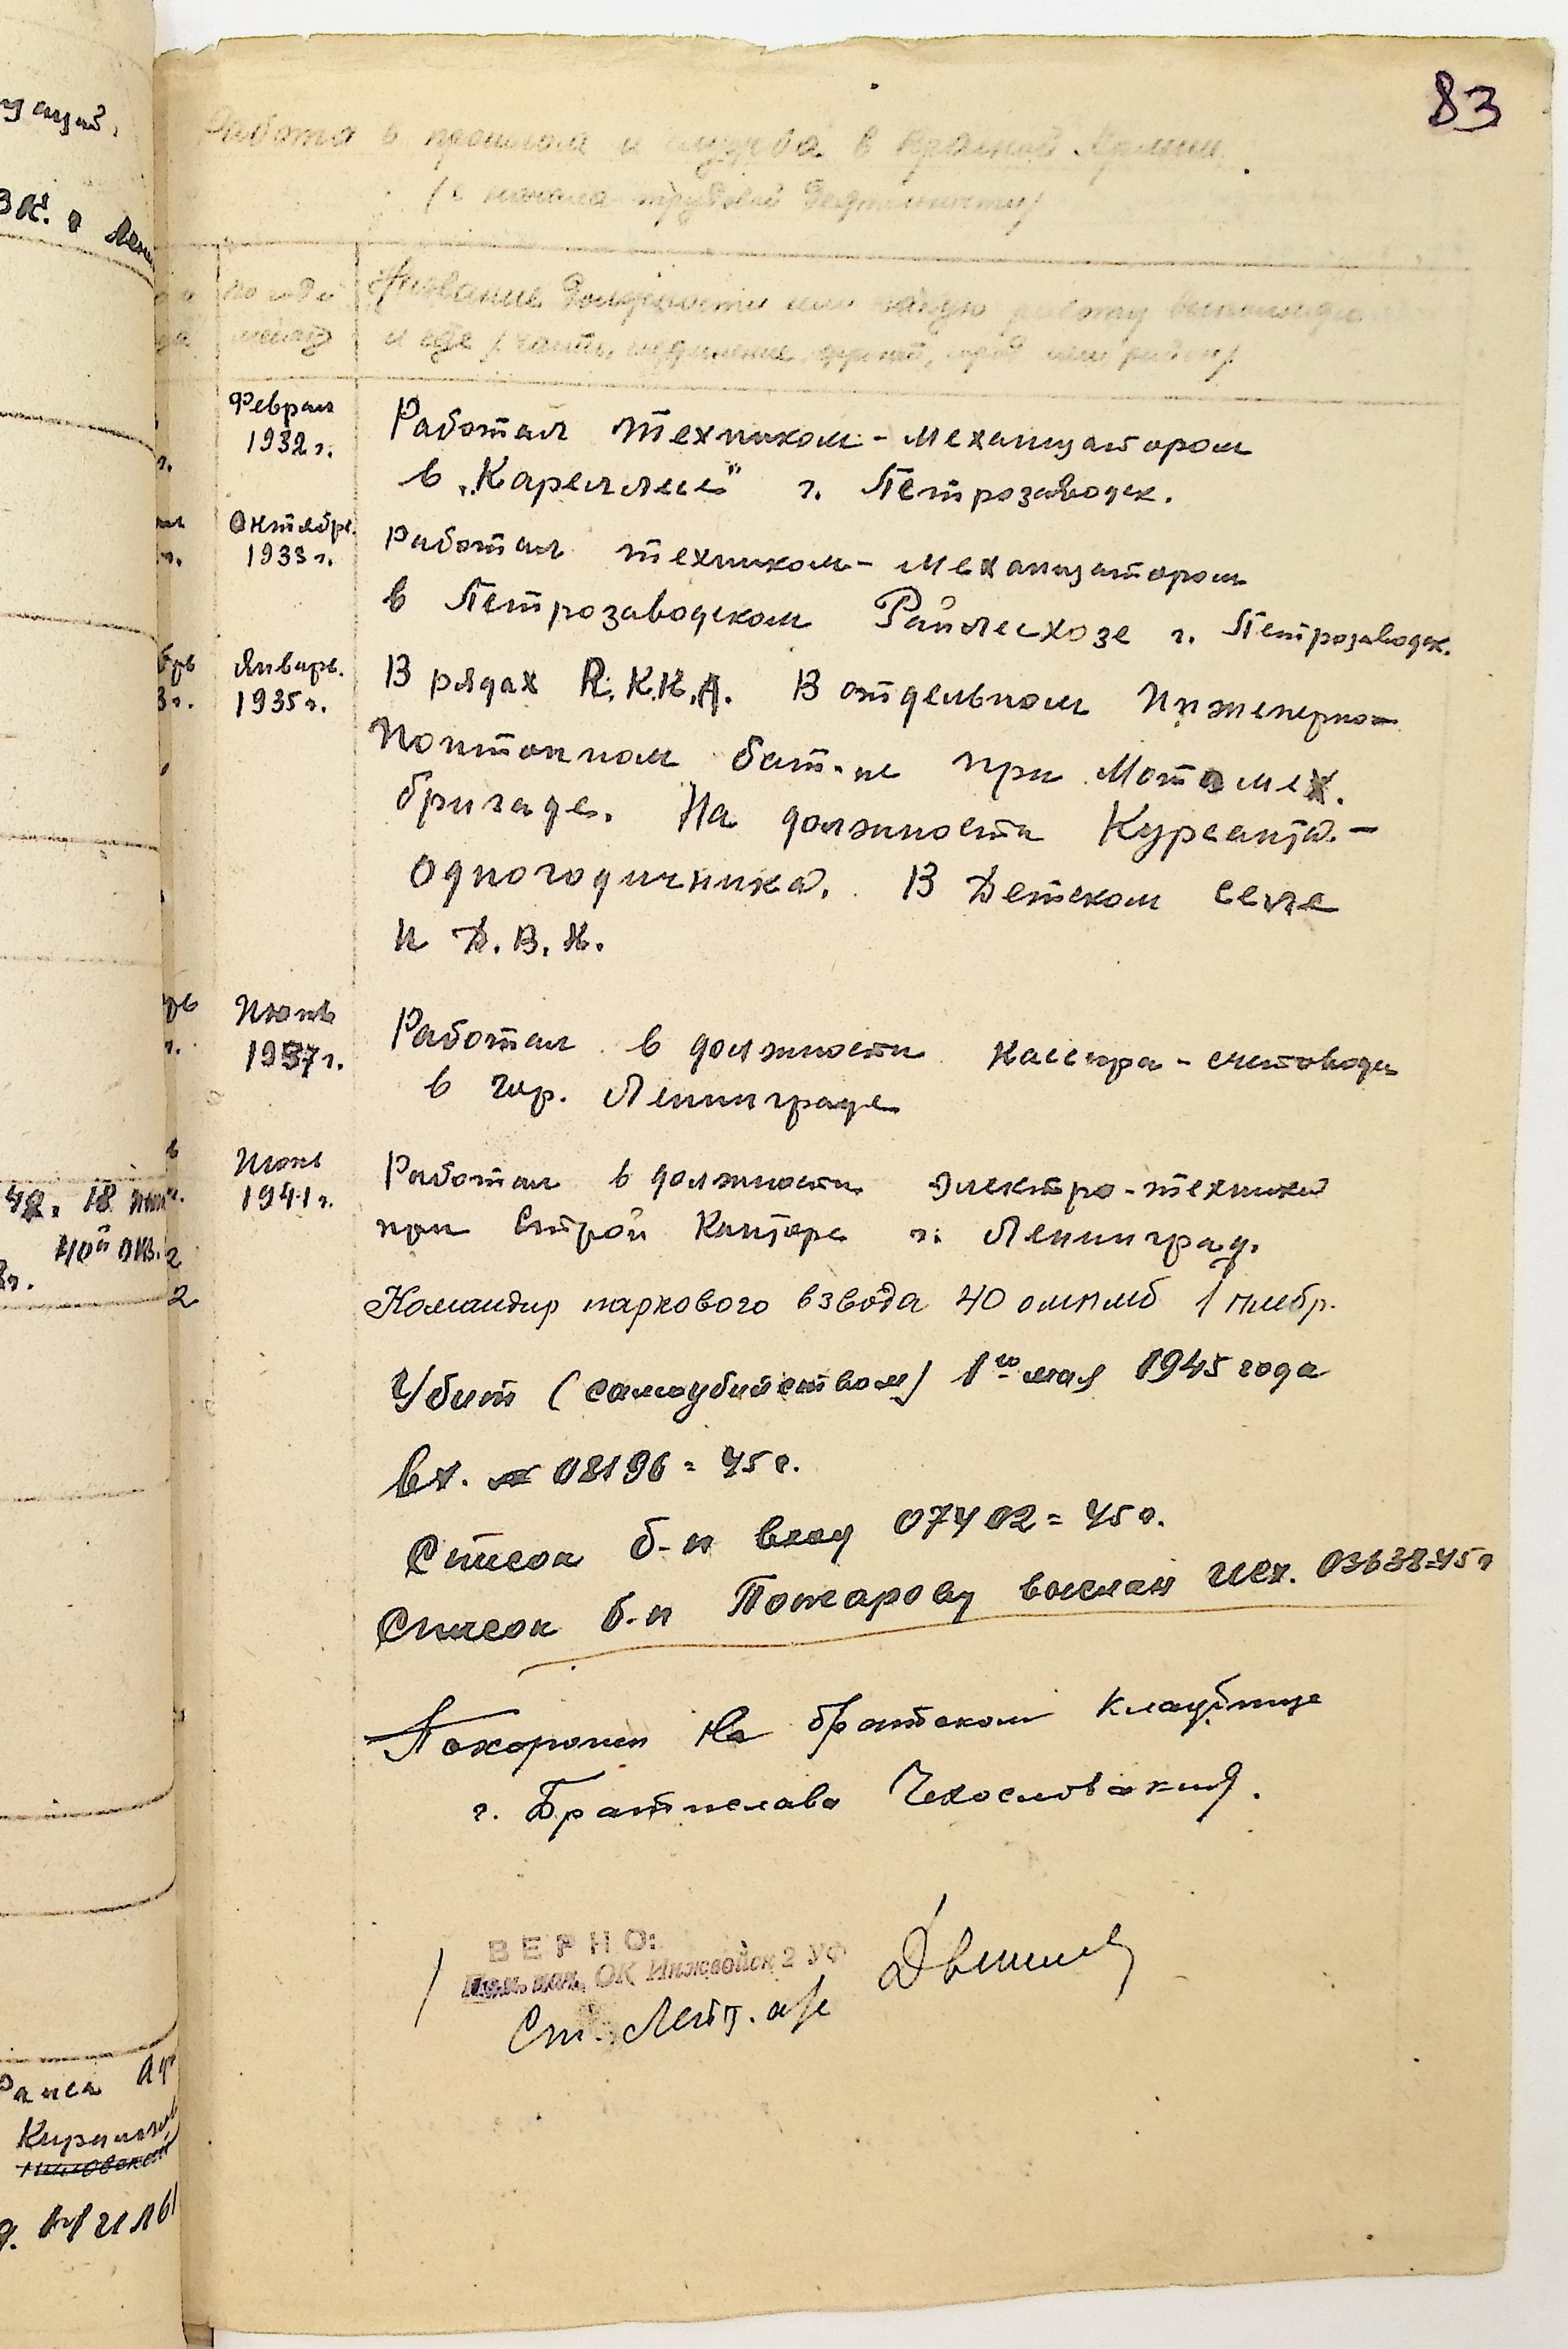 83
Работа в прошлом и служба в Красной Армии
/с начала трудовой деятельности/
по какой месяц
Название должности или какую работу выполнял
и где /часть, соединение, фронт, город или район/
Феврал
1932 г.
Работал техником-механизатором
в „Кареллесе" г. Петрозаводск.
Октябрь.
1933 г.
Работал техником-механизатором
в Петрозаводском Райлесхозе г. Петрозаводск.
Январь.
1935 г.
В рядах Р.К.К.А. В отдельном Инженерно-
Понтонном бат-не при Мотомех.
бригаде. На должности Курсанта-
Одногодичника. В Детском селе
и Д.В.К.
Июнь
1937 г.
Работал в должности Кассира-счетовода
в гор. Ленинграде
Июнь
1941 г.
Работал в должности Электро-техника
при Строй Конторе г. Ленинград.
Командир паркового взвода 40 омпмб 1 пмбр.
Убит (самоубийством) 1го мая 1945 года
вх. 08196=45 г.
Список б-п вход 07402=45 г.
Список б-п Пожарову выслан исх. 03638=45 г
Похоронен на братском кладбище
г. Братислава Чехословакия.
ВЕРНО:
ОК Инжвойск 2 УФ
Ст. Лейт. а/с